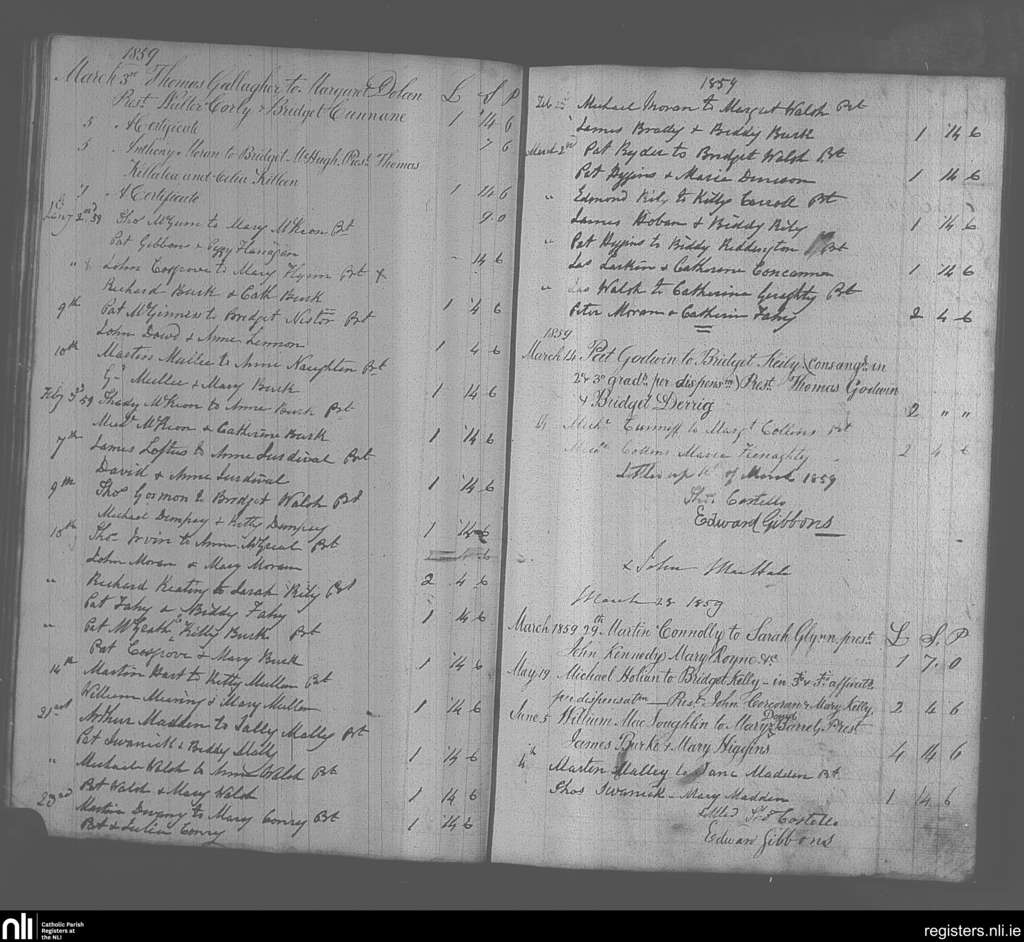 1859
March 3rd Thomas Gallagher to Margaret Dolan £ S P
Prest. Walter Corly & Bridget Cunnane 1 14 6
5 A Certificate 7 6
5 Anthony Moran to Bridget McHugh, Prest. Thomas
Killalea and Celia Killeen 1 14 6
7 A Certificate 9.0
2nd 59 Thos McGurn to Mary McKeon Pst
Pat Gibbons & Peggy Flanagan 14 6
" John Cosgrove to Mary Flynn Pst
Richard Burk & Cath Burk 1 4 6
9th Pat McGinness to Bridget Nestor Pst
John Dowd & Anne Lennon 1 4 6
10th Martin Mullee to Anne Naughten Pst
Mullee & Mary Burk 1 14 6
Feby 3rd 59 Thady McKeon to Anne Burk Pst
McKeon & Catherine Burk 1 14 6
7th James Loftus to Anne Surdival Pst
David & Anne Surdival 1 14 6
9th Thos Gormon to Bridget Walsh Pst
Michael Dempsey & Kitty Dempsey 1 14 6
10th Thos Irvin to Anne Pst
John Moran & Mary Moran
" Richard Keating to Sarah Rily Pst 2 4 6
Pat Fahy & Biddy Fahy 1 14 6
" Pat to Kitty Burk Pst
Pat Cosgrove & Mary Burk 1 14 6
14th Martin Hart to Kitty Mullen Pst
William & Mary Mullen 1 14 6
21st Arthur Madden to Sally Malley Pst
Pat Swanick & Biddy Mally 1 14 6
" Michael Walsh to Anne Walsh Pst
Pat Walsh & Mary Walsh 1 14 6
22nd Martin to Mary Conry Pst
Pat & Julia Conry 1 14 6
1859
Feb Michael Moran to Margret Walsh Pst
James Brady & Biddy Burk 1 14 6
March 2nd Pat Ryder to Bridget Walsh Pst
Pat Higgins & Maria 1 14 6
" Edmond Rily to Kitty Carroll Pst
James Hoban & Biddy Rily 1 14 6
" Pat Higgins to Biddy Reddington Pst
Jas Larkin & Catherine Concannon 1 14 6
" Jas Walsh to Catherine Geraghty Pst
Peter Moran & Catherin Fahy 2 4 6
1859
March 14 Peet Godwin to Bridget Healy (Consang. in
2 & 3 grad. per dispensm) Prest. Thomas Godwin
& Bridget Derrig 2 " "
Michl to Margt Collins Pst
Collins Maria 2 4 6
Settled up to of March 1859
Thos Costello
Edward Gibbons
+ John MacHale
March 28 1859
March 1859 29th Martin Connolly to Sarah Glynn prest. £ S. P
John Kennedy & Mary Coyne &c 1 7.0
May 19 Michael Holian to Bridget Kelly - in 3 & 3 affinit.
per dispensatm - Prest. John Corcoran & Mary Kelly. 2 4 6
June 5 William MacLoughlin to Mary David Barret, Prest
James Burke & Mary Higgins 4 14 6
Martin Malley to Jane Madden Pst.
Thos Swanick - Mary Madden 1 14 6
Settled Costello
Edward Gibbons
nli Catholic Parish
Registers at
the NLI
registers.nli.ie